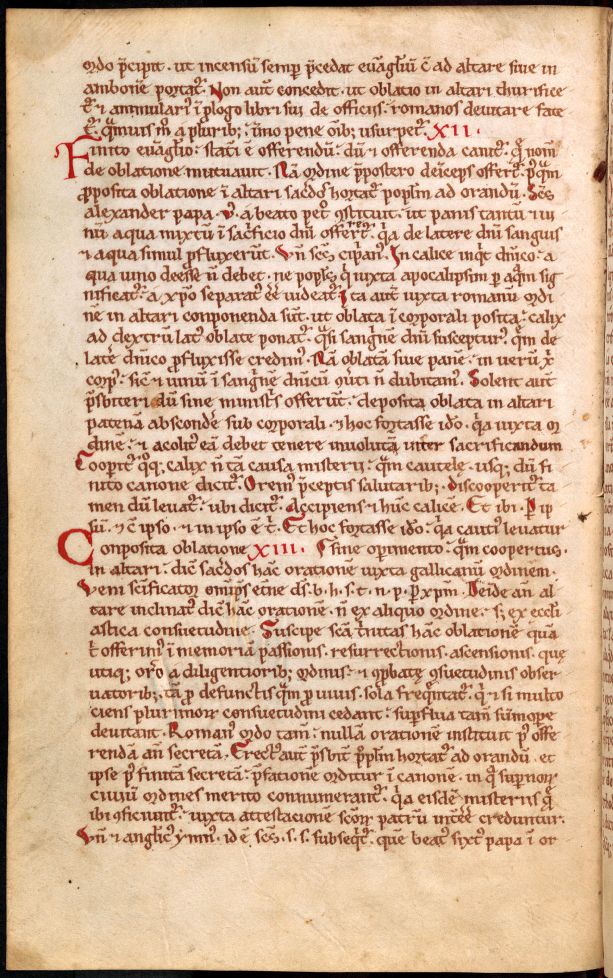 ordo p̄cipit · ut incensū semp p̄cedat euāgłiū c̄ ad altare siue in
ambone portat᷑. Non aut̄ concedit · ut oblatio in altari thurifice
t᷑ · ⁊ ammulariꝰ ī plogo libri sui de officiis · romanos deuitare fate
t᷑ · qͣmuis m̊ a plurib; · ūmo pene om̄ib; usurpet᷑. XII ·
Finito euāgłio · stati ē offerendū · dū ⁊ offerenda canit᷑ · q̄ nom̄
de oblatione mutuauit. Nā ordine p̄postero deīceps offert᷑ · pꝰqͣm
p̄posita oblatione ī altari sac̄dos hortat᷑ popl̄m ad orandū. Sc̄s
alexander papa · v · a beato pet̊ ꝯstituit · ut panis tantū ⁊ ui
nū aqua mixtū ī sac̄ficio dn̄i offerret᷑ · qͣa de latere dn̄i sanguis
⁊ aqua simul p̄fluxer̄t. Vn̄ sc̄s cip̄an̄. In calice inqͥt dn̄ico · a
qua uino deesse n̄ debet · ne popl̄s q̄ iuxta apocalipsim p aqͣm sig
nificat᷑ · a xp̄o separat᷑ ēē uideat᷑. Ita aut̄ iuxta romanū ordi
nē in altari componenda sūt · ut oblata ī corporali posita · calix
ad dextrū latꝰ oblate ponat᷑ · qͣsi sangͥnē dn̄i suscepturꝰ · quē de
lat̄e dn̄ico p̄fluxisse credimꝰ. Nā oblatā siue panē · in uerū x̄
corpꝰ · sic̄ ⁊ uinū ī sangͥnē dn̄icū ūti n̄ dubitamꝰ. Solent aut̄
p̄sbiteri dū sine ministͥs offerūt · deposita oblata in altari
patenā absconde sub corporali · ⁊ hoc fortasse id̊o · qͣa iuxta or
dinē · ⁊ acolitꝰ eā debet tenere inuolutā inter sacrificandum
Coopit᷑ qͦq; calix n̄ tā causa misterii · qͣm cautelę · usq; dū fi
nito canone dicit᷑. Oremꝰ p̄ceptis salutarib; · discoopertꝰ ta
men dū leuat᷑ · ubi dicit᷑. Accipiens ⁊ hūc calicē. Et ibi · P ip
sū · ⁊ c̄ ipso · ⁊ in ipso ē t᷑. Et hoc fortasse id̊o · qͣa cautiꝰ leuatur
Conposita oblatione XIII · sine opimento · qͣm coopertus ·
in altari · dic̄ sac̄dos hāc orationē iuxta gallicanū ordinem ·
Veni sc̄ificator omīps et̄ne ds̄ · b · h · s · t · n · p · p xp̄m. Deīde an̄ al
tare inclinatꝰ dic̄ hāc orationē · n̄ ex aliquo ordine · s; ex eccli
astica consuetudine. Suscipe sc̄a t̊nitas hāc oblationē quā
t̊ offerimꝰ ī memoriā passionis · resurrectionis · ascensionis · quę
utiq; or̄o a diligentiorib; ordinis · ⁊ ꝯp̄batę ꝯsuetudinis obser
uatorib; · tā p defunctis qͣm p uiuis · sola freq̄ntat᷑ · qͥ ⁊ si multo
ciens pluri᷑morꝝ consuetudini cedant · supflua tam̄ sum̄opere
deuitant. Romanꝰ ordo tam̄ · nullā orationē instituit pꝰ offe
rendā an̄ secretā. Erectꝰ aut̄ p̄sbit̄ ppl̄m hortat᷑ ad orandū · et
ipse pꝰ finitā secretā · p̄fationē ordit᷑ ī canonē · in qͣ supnorꝝ
ciuiū ordines merito connumerant᷑ · qͣa eisdē misteriis qͣ
ibi ꝯficiunt᷑ · iuxta attestacionē sc̄orꝝ patrū int̄ee creduntur.
Vn̄ ⁊ anglicꝰ ymnꝰ · id ē sc̄s · s · s · subseqͥt᷑ · quē beatꝰ sixtꝰ papa ī or